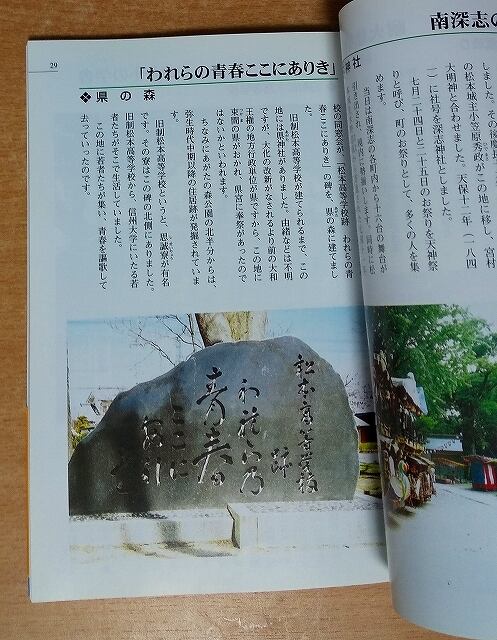 南深志の
神社
しました。その
の松本城主小笠原秀政がこの地に移し、宮村
大明神と合わせました。天保十二年（一八四
一）に社号を深志神社としました。
七月二十四日と二十五日のお祭りを天神祭
りと呼び、町のお祭りとして、多くの人を集
めます。
当日は南深志の各町内から十六台の舞台が
29
「われらの青春ここにありき」
❖ 県の森
校の同窓会が「松本高等学校跡　われらの青
春ここにありき」の碑を、県の森に建てまし
た。
旧制松本高等学校が建てられるまで、この
地には県神社がありました。由緒などは不明
ですが、大化の改新がなされるより前の大和
王権の地方行政単位が県ですから、この地に
束間の県がおかれ、県宮に奉祭があったので
はないかといわれます。
ちなみにあがたの森公園の北半分からは、
弥生時代中期以降の住居跡が発掘されていま
す。
旧制松本高等学校というと、思誠寮が有名
です。その寮はこの碑の北側にありました。
旧制松本高等学校から、信州大学にいたる若
者たちがそこで生活していました。
この地に若者たちが集い、青春を謳歌して
去っていったのです。
松本高等学校
跡
われらの
青春
ここに
ありき